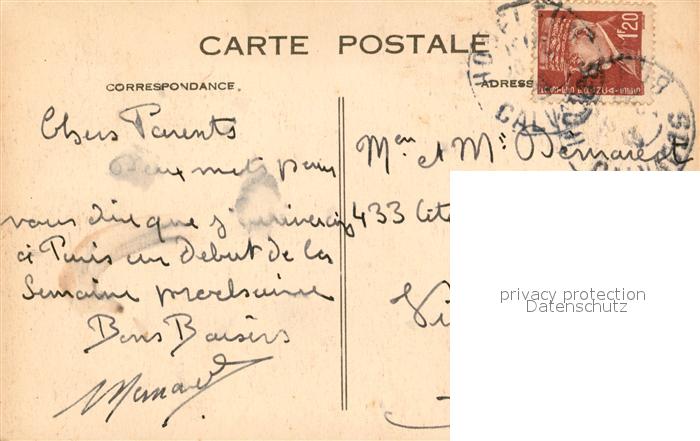 CARTE POSTALE
CORRESPONDANCE.
ADRESS
1F20
CALV
Chers Parents
Deux mots pour
vous dire que j'arriverais
à Paris au Debut de la
Semaine prochaine
Bons Baisers
Mr et Me
433 Cité
Vi
privacy protection
Datenschutz